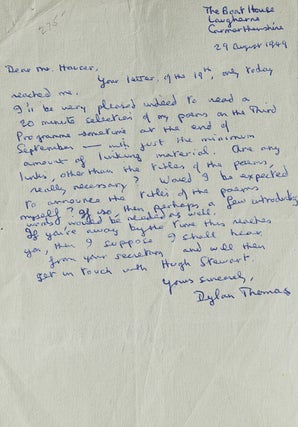 295
The Boat House
Laugharne
Carmarthenshire
29 August 1949
Dear Mr. Hawer,
Your letter, of the 19th, only today
reached me.
I'll be very pleased indeed to read a
20 minute selection of my poems on the Third
Programme sometime at the end of
September — with just the minimum
amount of linking material. Are any
links, other than the titles of the poems,
really necessary? Would I be expected
to announce the titles of the poems
myself? If so, then perhaps a few introductory
words would be needed as well.
If you're away by the time this reaches
you, then I suppose I shall hear
from your secretary and will then
get in touch with Hugh Stewart.
Yours sincerely,
Dylan Thomas